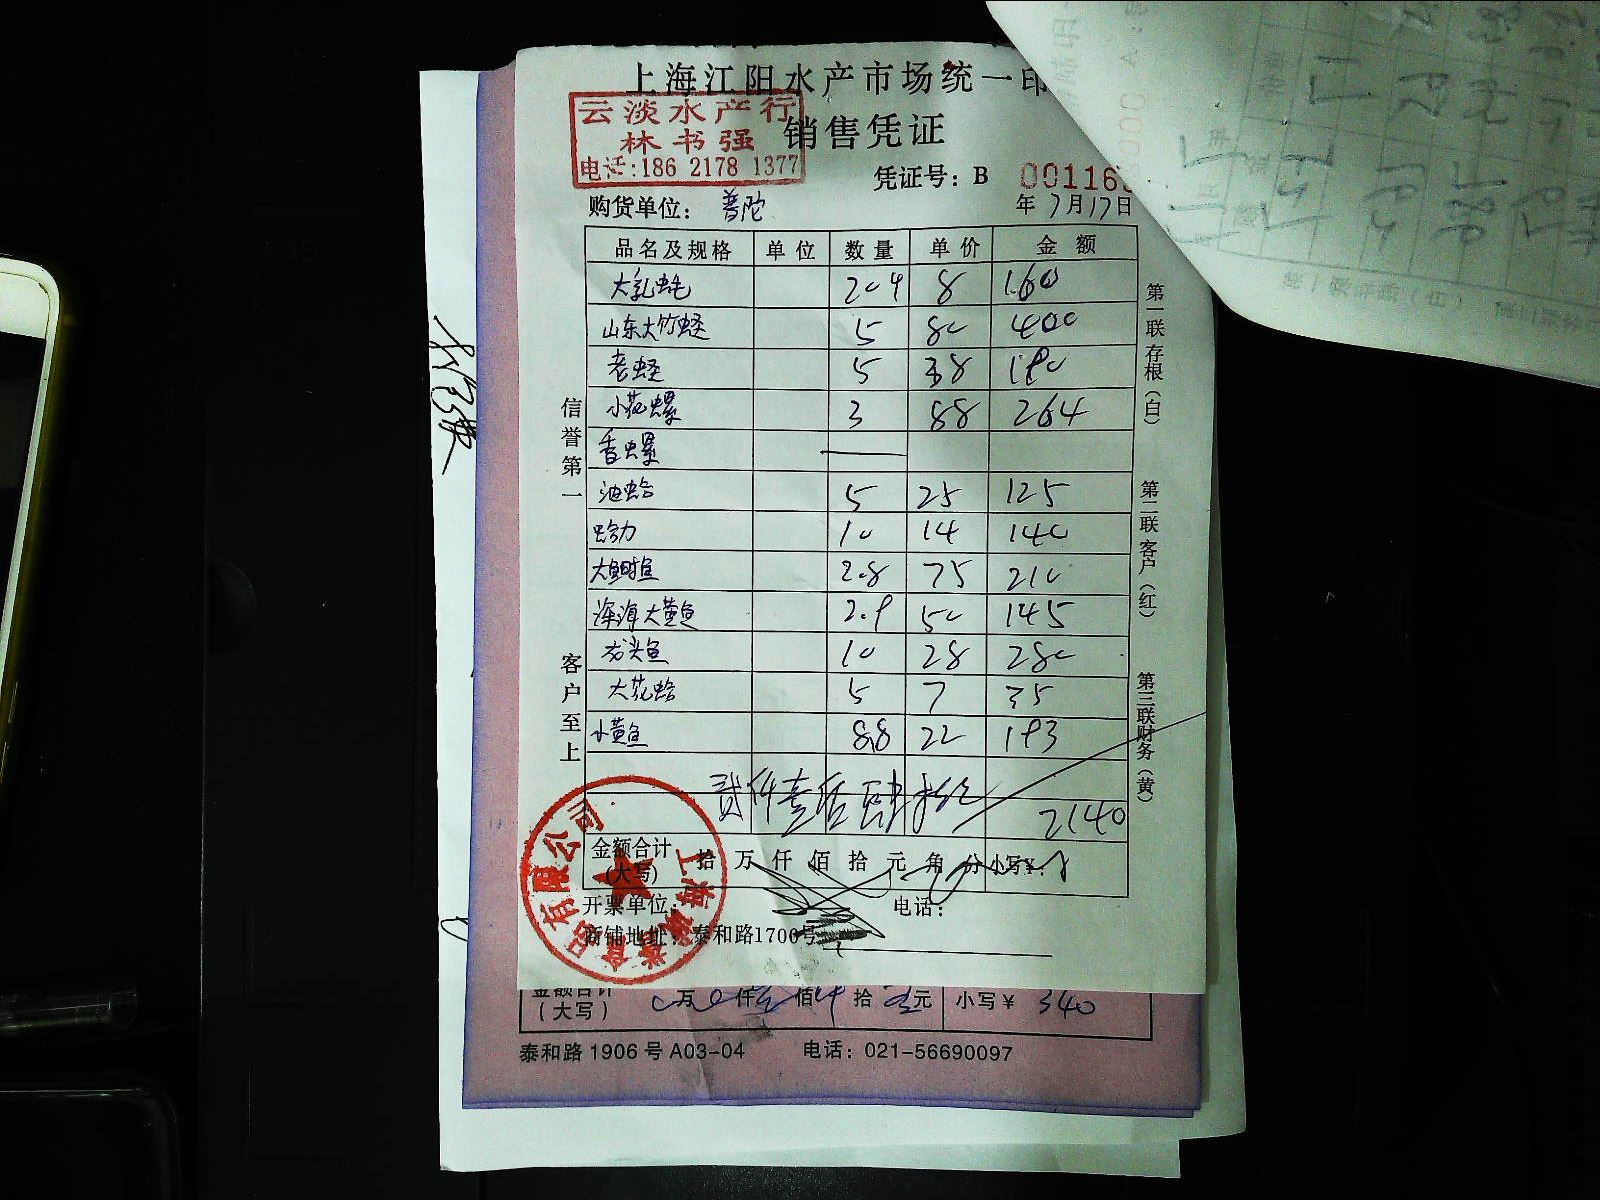 上海江阳水产市场统一印
云淡水产行
林书强
电话:186 2178 1377
销售凭证
凭证号：B 00116
购货单位： 普陀
年 7月17日
品名及规格 单位 数量 单价 金额
大乳蚌 204 8 160
山东大竹蛏 5 80 400
老蛏 5 38 190
小花螺 3 88 264
香螺 —
油蛤 5 25 125
蛤力 10 14 140
大鲥鱼 2.8 75 210
深海大黄鱼 2.9 50 145
龙头鱼 10 28 280
大花蛤 5 7 35
小黄鱼 8.8 22 193
贰仟壹佰肆拾元
2140
金额合计
(大写) 拾 万 仟 佰 拾 元 角 分 小写¥:
开票单位： 电话：
商铺地址：泰和路1700号
信誉第一
客户至上
第一联 存根（白）
第二联 客户（红）
第三联 财务（黄）
上海 食品有限公司
金额合计
（大写） 万 仟 佰 拾 元 小写￥ 340
泰和路 1906 号 A03-04 电话：021-56690097